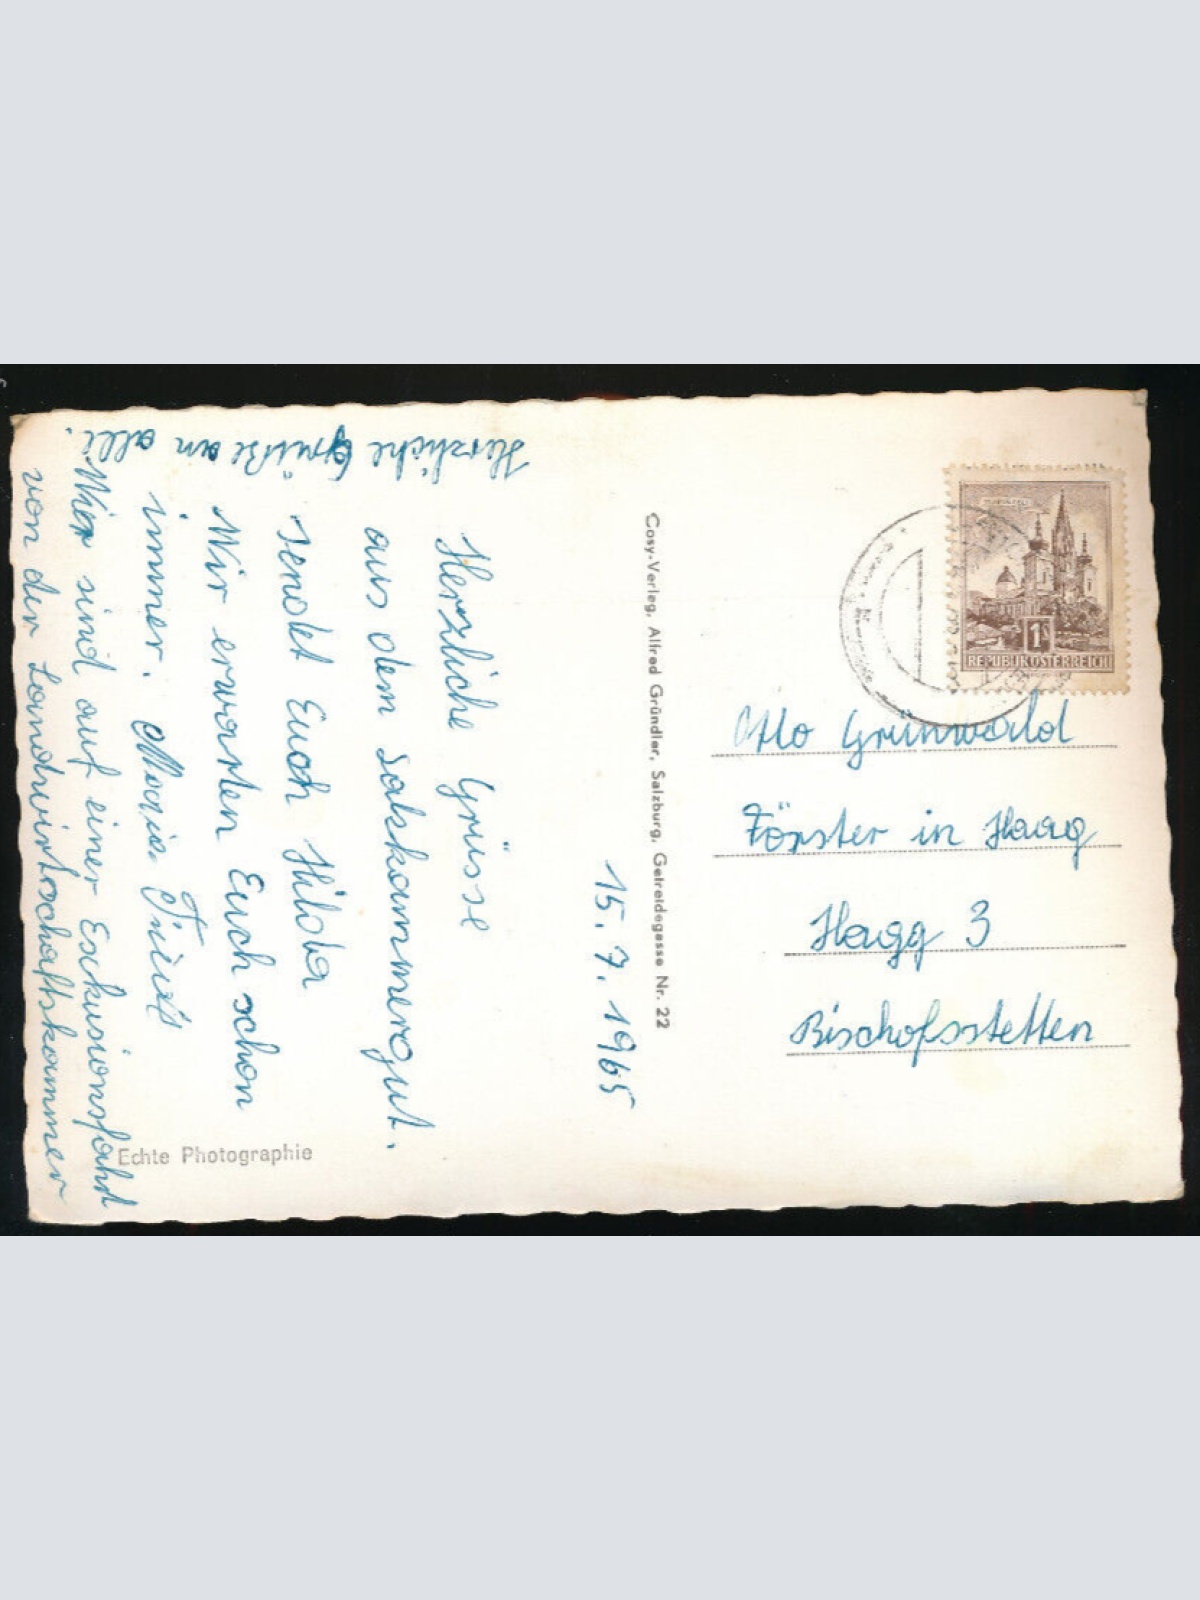 15.7.1965
Herzliche Grüsse
aus dem Salskammergut.
sendet Euch Hilda
Wir erwarten Euch schon
immer. Maria.
Wier sind auf einer Exkusionsfahrt
von der Landwirtschaftskammer
Herzliche Grüße an alle.
Echte Photographie
Cosy-Verlag, Alfred Gründler, Salzburg, Getreidegasse Nr. 22
1S
REPUBLIK ÖSTERREICH
Otto Grünwald
Förster in Haag
Hagg 3
Bischofsstetten